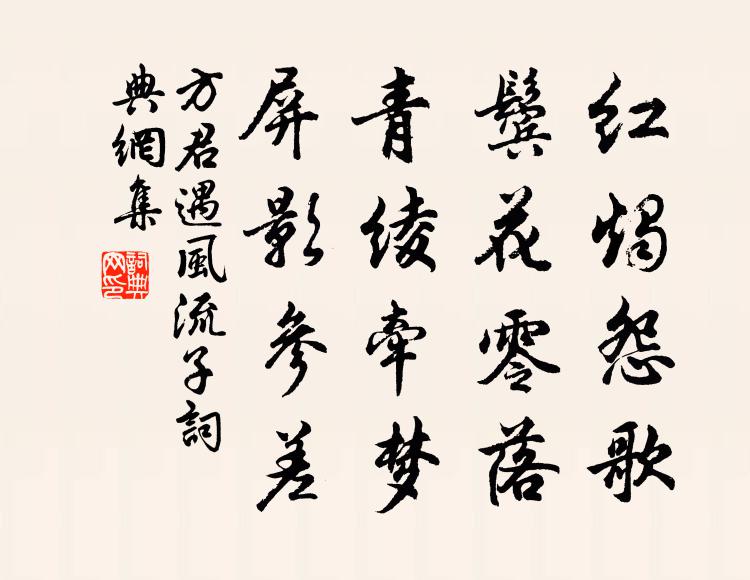 红烛怨歌
鬓花零落
青绫牵梦
屏影参差
方君遇風流子詞
典網集
詞典網印